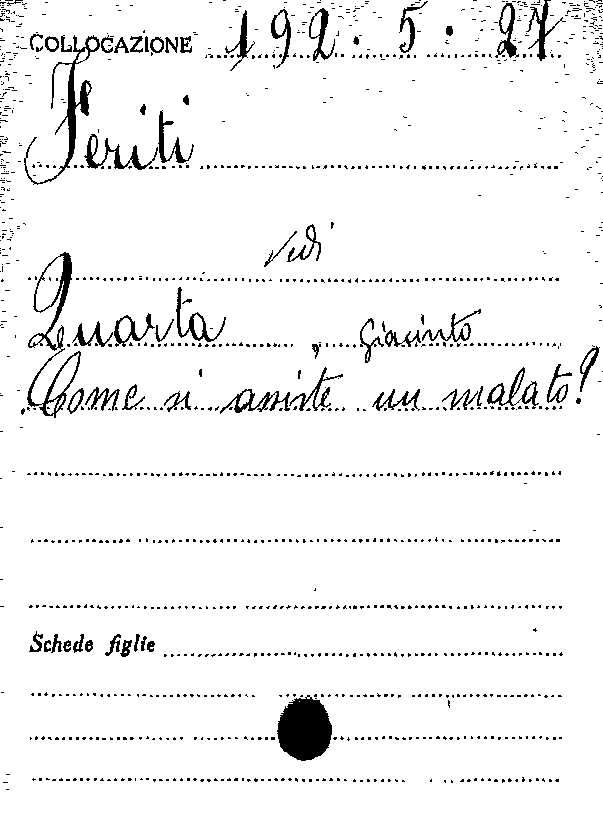 COLLOCAZIONE 192.5.27
Feriti
Vedi
Quarta, Giacinto
Come si assiste un malato?
Schede figlie